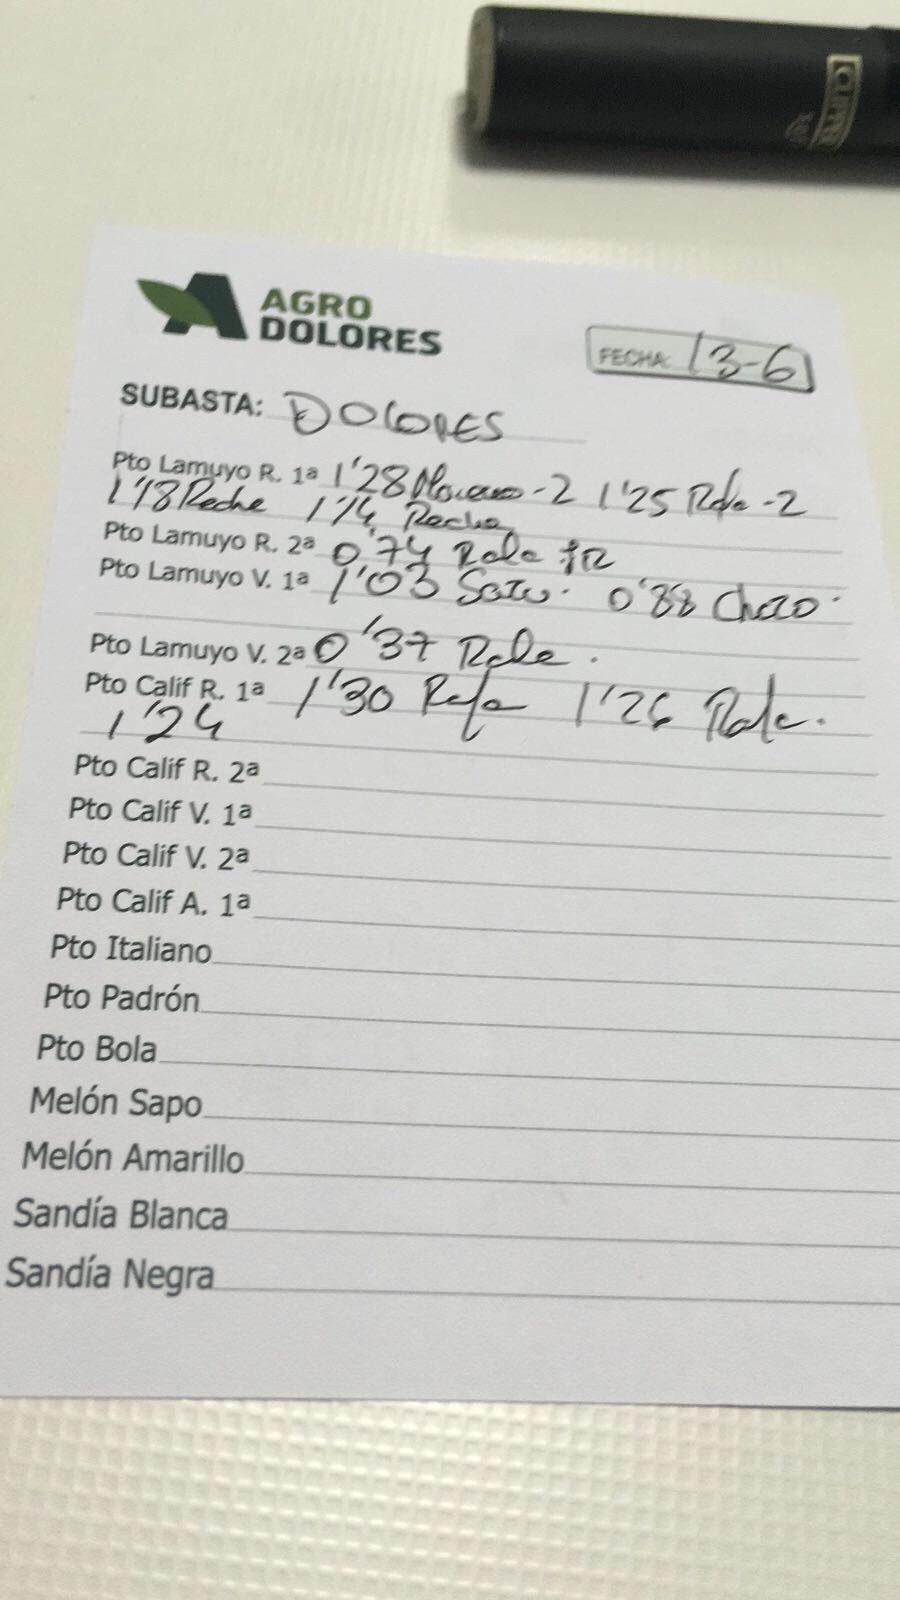 CLIPPER
AGRO
DOLORES
FECHA: 13-6
SUBASTA: DOLORES
Pto Lamuyo R. 1ª 1'28 Moreno-2 1'25 Rafa-2
1'18 Reche 1'14 Reche
Pto Lamuyo R. 2ª 0'74 Rafa
Pto Lamuyo V. 1ª 1'03 0'88
Pto Lamuyo V. 2ª 0'37 Rafa.
Pto Calif R. 1ª 1'30 Rafa 1'26 Rafa.
1'24
Pto Calif R. 2ª
Pto Calif V. 1ª
Pto Calif V. 2ª
Pto Calif A. 1ª
Pto Italiano
Pto Padrón
Pto Bola
Melón Sapo
Melón Amarillo
Sandía Blanca
Sandía Negra